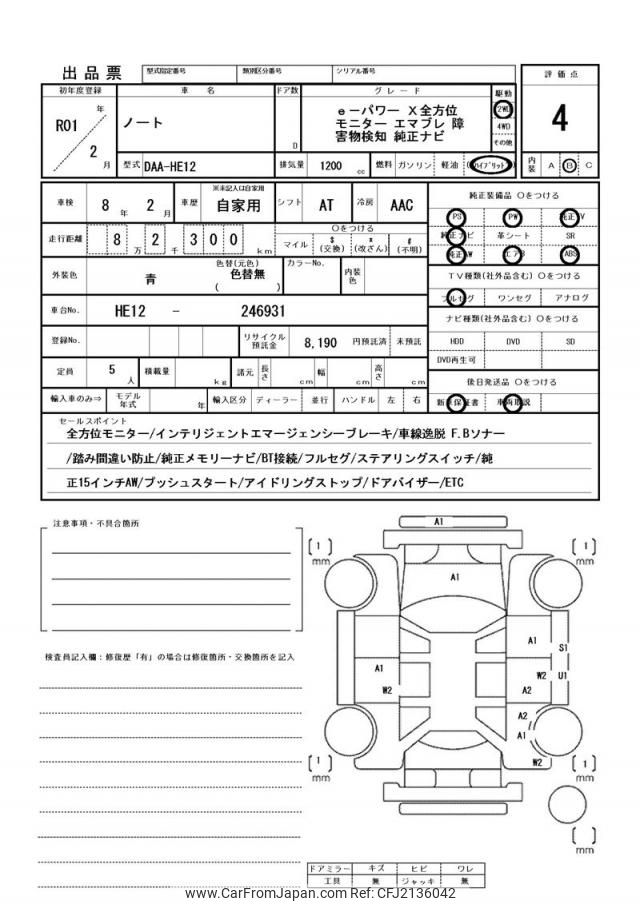 出品票 型式指定番号 類別区分番号 シリアル番号
評価点
4
内装 A B C
初年度登録 車名 ドア数 グレード 駆動
R01 年 2 月
ノート
D
e－パワー X全方位
モニター エマブレ 障
害物検知 純正ナビ
2WD
4WD
その他
型式 DAA-HE12 排気量 1200 cc 燃料 ガソリン 軽油 (ハイブリット)
車検 8 年 2 月 車歴 ※未記入は自家用 自家用 シフト AT 冷房 AAC
走行距離 8 万 2 千 300 km
○をつける
マイル $(交換) *(改ざん) #(不明)
外装色 青 色替(元色) 色替無 ( ) カラーNo. 内装色
車台No. HE12 － 246931
登録No. リサイクル預託金 8,190 円預託済 未預託
定員 5 人 積載量 kg 諸元 長さ cm 幅 cm 高さ cm
輸入車のみ⇒ モデル年式 年 輸入区分 ディーラー 並行 ハンドル 左 右
純正装備品 ○をつける
PS PW 純正TV
純正ナビ 革シート SR
純正AW エアB ABS
TV種類(社外品含む) ○をつける
フルセグ ワンセグ アナログ
ナビ種類(社外品含む) ○をつける
HDD DVD SD
DVD再生可
後日発送品 ○をつける
新車保証書 車両取説
セールスポイント
全方位モニター/インテリジェントエマージェンシーブレーキ/車線逸脱 F.Bソナー
/踏み間違い防止/純正メモリーナビ/BT接続/フルセグ/ステアリングスイッチ/純
正15インチAW/プッシュスタート/アイドリングストップ/ドアバイザー/ETC
注意事項・不具合箇所
検査員記入欄：修復歴「有」の場合は修復箇所・交換箇所を記入
A1
[1] mm
[1] mm
A1
A1
S1
A1
W2
W2
U1
A2
A2
A1
W2
[1] mm
[1] mm
[ ] mm
ドアミラー キズ ヒビ ワレ
工具 無 ジャッキ 無
www.CarFromJapan.com Ref: CFJ2136042